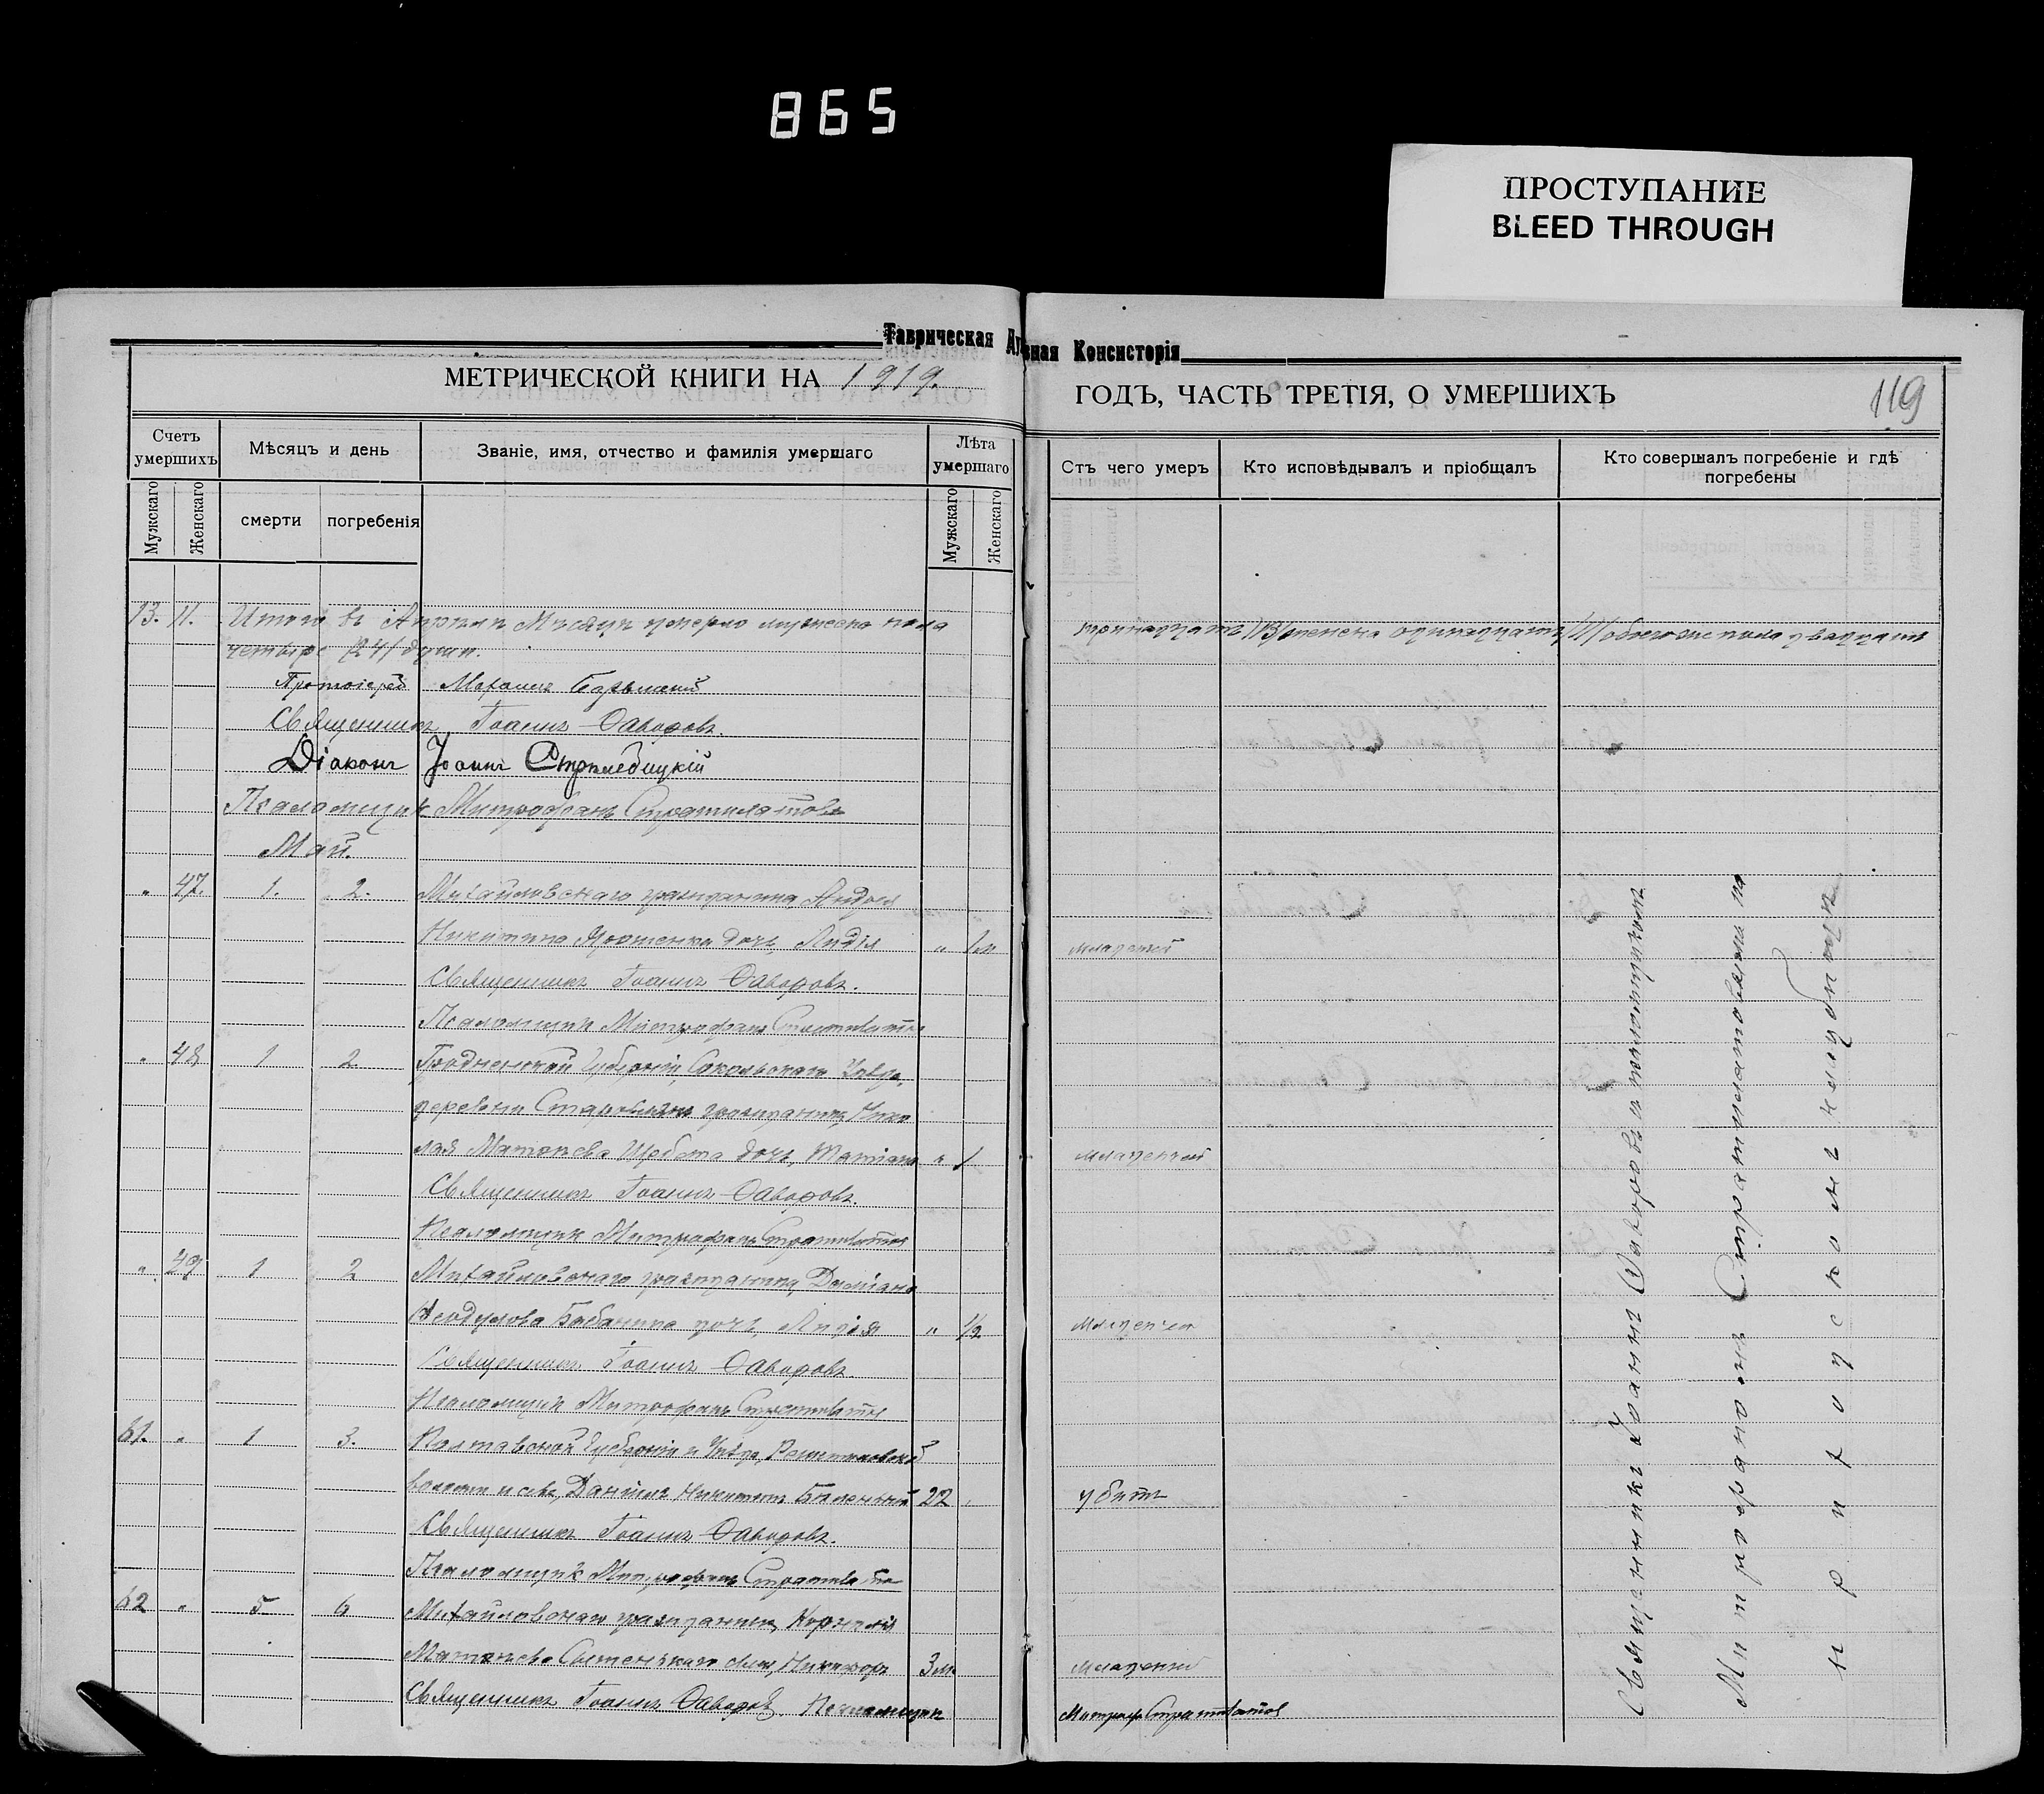 865
ПРОСТУПАНИЕ
BLEED THROUGH
Таврическая Духовная Консисторія
МЕТРИЧЕСКОЙ КНИГИ НА 1919.
ГОДЪ, ЧАСТЬ ТРЕТІЯ, О УМЕРШИХЪ
119
Счетъ умершихъ
Мѣсяцъ и день
Званіе, имя, отчество и фамилія умершаго
Лѣта умершаго
Стъ чего умеръ
Кто исповѣдывалъ и пріобщалъ
Кто совершалъ погребеніе и гдѣ погребены
Мужскаго
Женскаго
смерти
погребенія
Мужскаго
Женскаго
13. 11. Итого въ Апрѣлѣ Мѣсяцѣ умерло мужеска пола тринадцать /13/ женска одинадцать /11/ обоего же пола двадцать
четыре /24/ души.
Протоіерей
Священникъ Іоаннъ Фаворовъ.
Діаконъ Іоаннъ Стрѣлебицкій
Псаломщикъ Митрофанъ Стратилатовъ
Май.
" 47. 1. 2. Михайловскаго гражданина Андрея
Никитина дочь, Лидія " 1 м младенчей
Священникъ Іоаннъ Фаворовъ.
Псаломщикъ Митрофанъ Стратилатовъ
" 48 1 2 Гродненской Губерніи, Сокольскаго Уѣзда,
деревни гражданина Нико
лая Матвѣева Щебета дочь, Татіана " 1 младенчей
Священникъ Іоаннъ Фаворовъ.
Псаломщикъ Митрофанъ Стратилатовъ
" 49 1 2 Михайловскаго гражданина, Даміана
Феодулова Бабанина дочь, Лидія " 1/2 младенчей
Священникъ Іоаннъ Фаворовъ
Псаломщикъ Митрофанъ Стратилатовъ
61. " 1 3. Полтавской Губерніи и Уѣзда, Решетиловской
волости и села, Даніилъ Никитинъ 22 " убитъ
Священникъ Іоаннъ Фаворовъ.
Псаломщикъ Митрофанъ Стратилатовъ
62 " 5 6 Михайловскаго гражданина, Корнилія
Матвѣева сынъ, Никифоръ 3 м. младенчей
Священникъ Іоаннъ Фаворовъ Псаломщикъ Митроф. Стратилатовъ
Священникъ Іоаннъ Фаворовъ и псаломщикомъ
Митрофаномъ Стратилатовымъ на
приходскомъ кладбищѣ